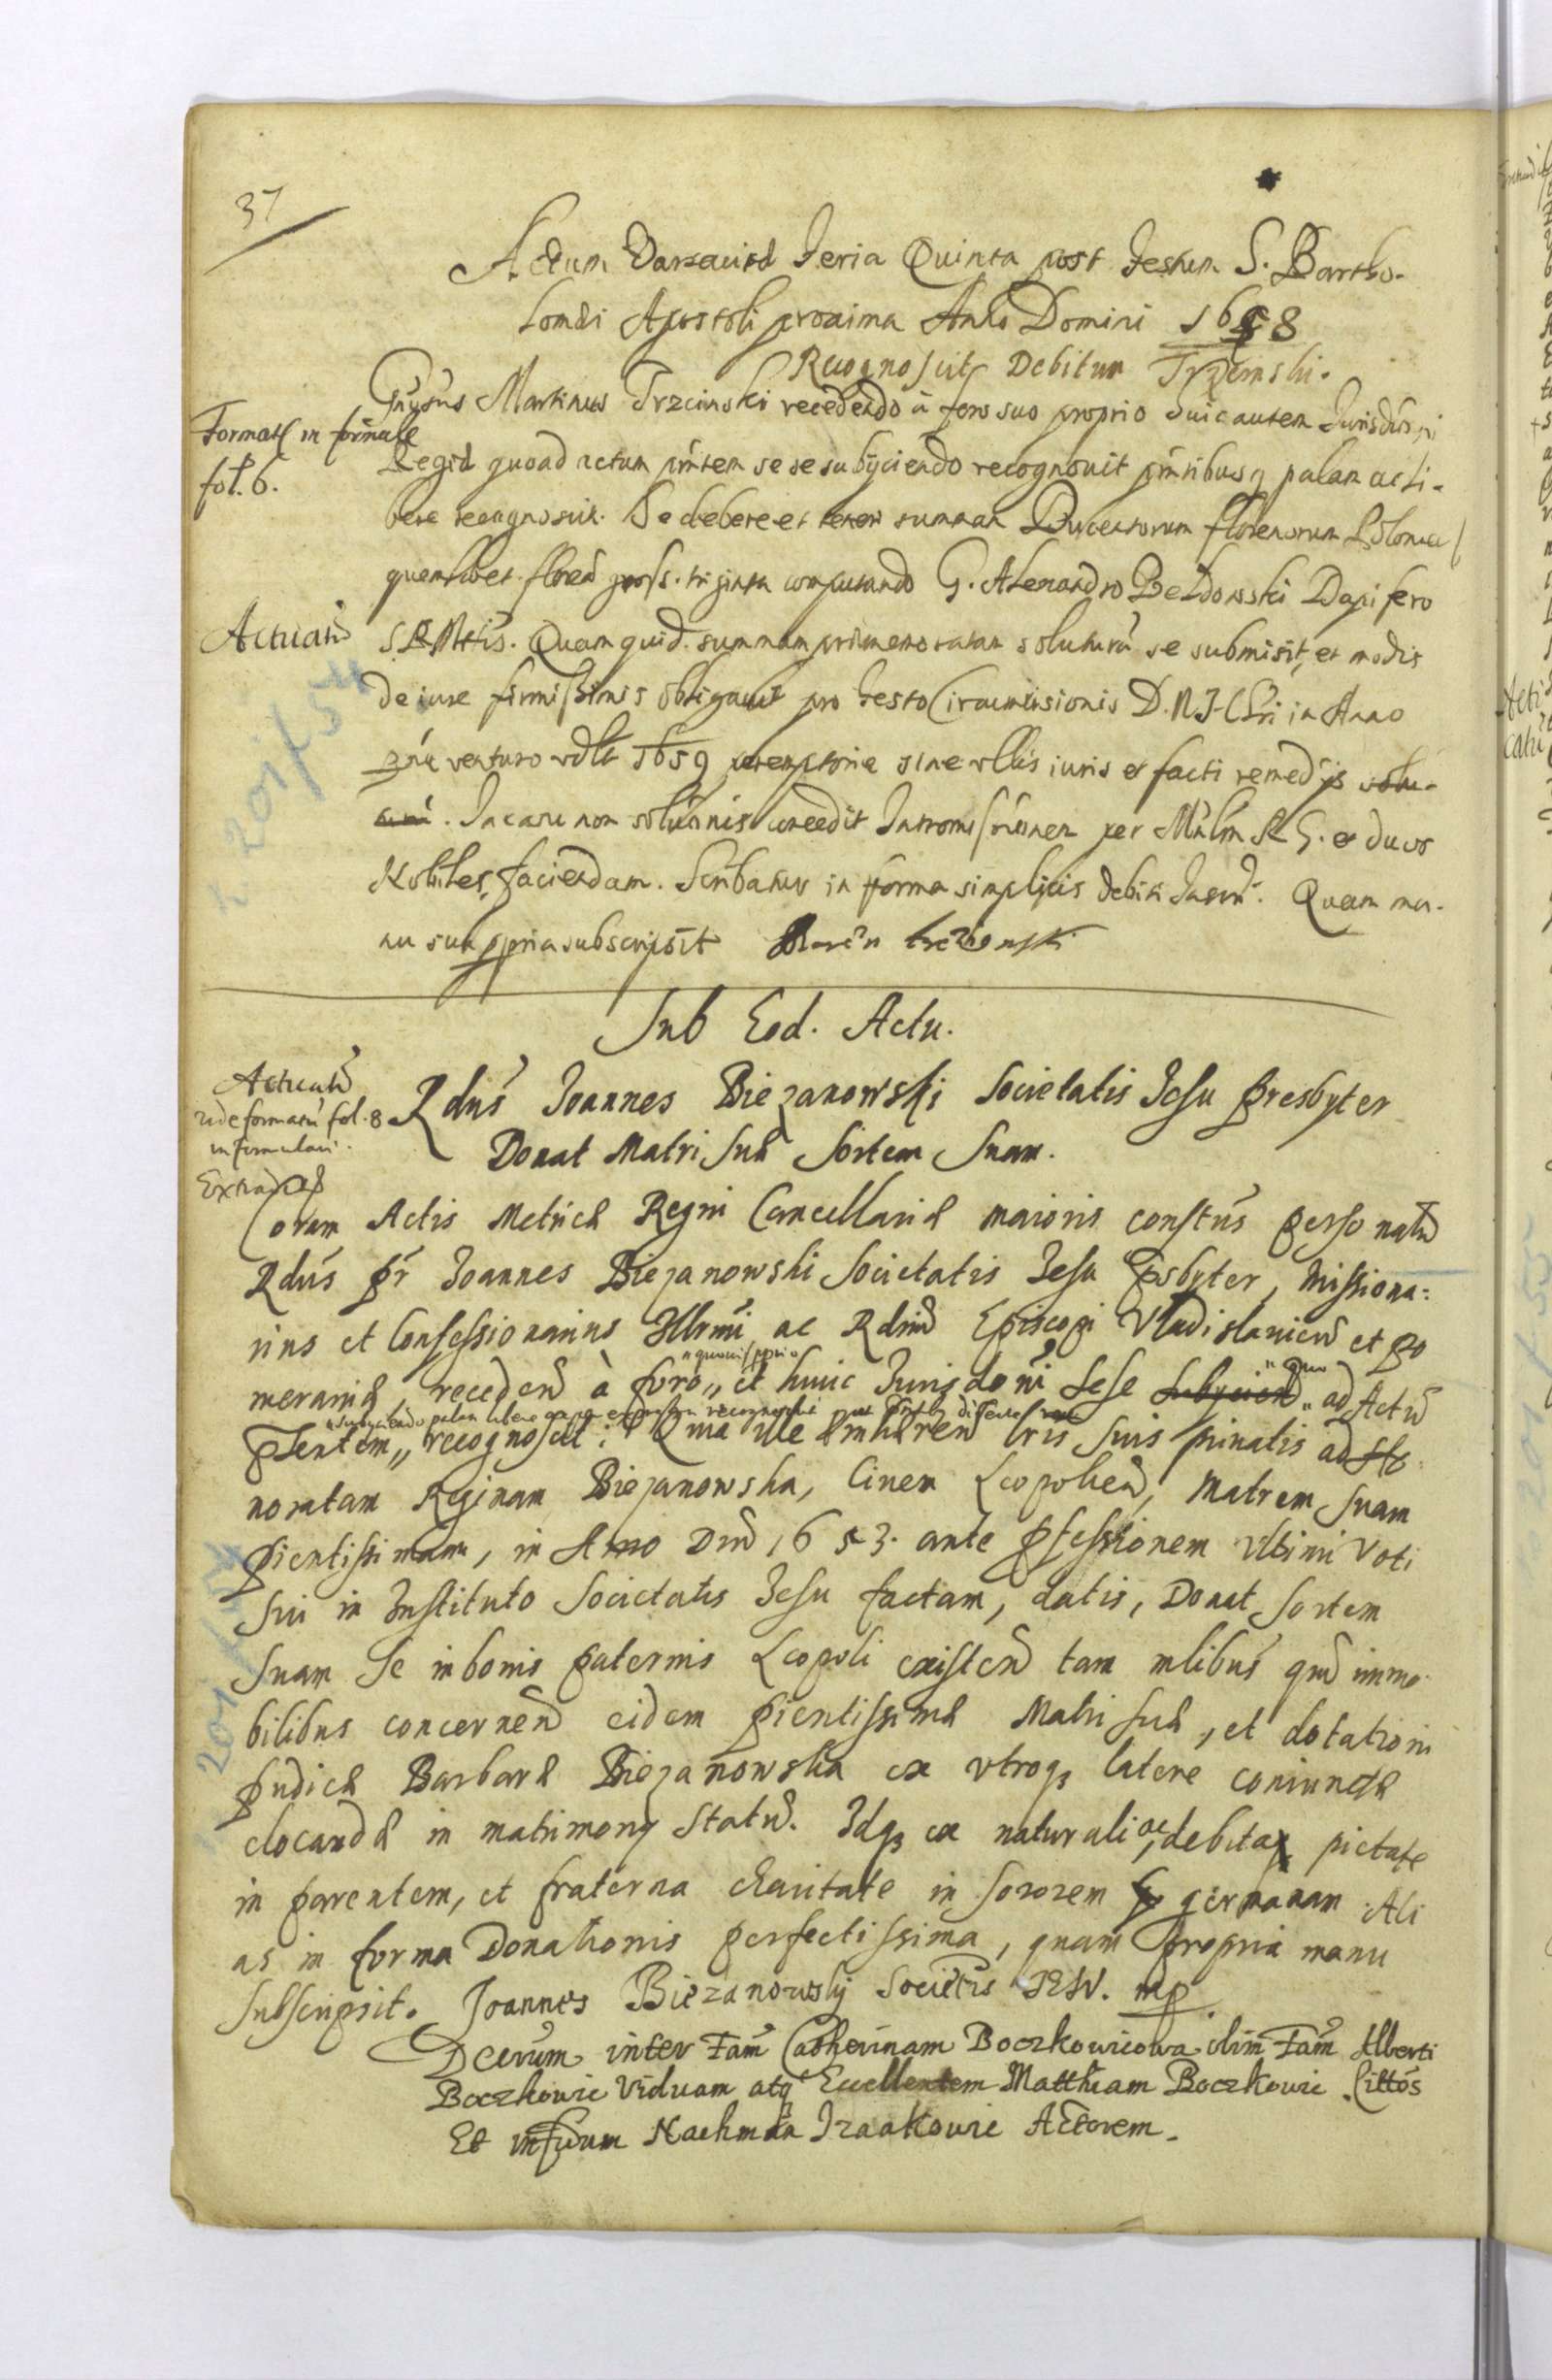 37
Actum Varsaviæ Feria Quinta post Festum S. Bartho-
lomæi Apostoli proxima Anno Domini 1658
Recognoscit Debitum Trzcinski.
Gnrsus Martinus Trzcinski recedendo à foro suo proprio huic autem Jurisdni
Formatū in formula
fol. 6.
Regiæ quoad actum pntem se se subijciendo recognovit pntibusq palam ac li-
bere recognoscit. Se debere et teneri summam Ducentorum florenorum Polonical
quemlibet flore gross. triginta computando G. Alexandro Dapifero
Actuatū
S.R.Mtis. Quam quid. summam præmemoratam soluturū se submisit, et modis
de iure firmissimis obligavit pro Festo Circumcisionis D.N.J. Chri in Anno
venturo vdlt 1659 peremptorie sine vllis iuris et facti remedijs solu-
. In casu non solutionis concedit Intromissionem per Mnlm R G. et duos
Nobiles, faciendam. Scribatur in forma simplicis debiti Inscr. Quam ma-
nu sua ppria subscripsit Marcin trzcionski
Sub Eod. Actu.
Actuatū
vide formatū fol. 8
in formulari.
Extradi
Rdus Joannes Biezanowski Societatis Jesu Presbyter
Donat Matri suæ Sortem suam.
Coram Actis Metricæ Regni Cancellariæ maioris consttus personalr
Rdus pr Joannes Biezanowski Societatis Jesu Psbyter, Missiona:
rius et Confessionarius Illrmi ac Rdmi Episcopi Vladislavien et Po
meraniæ, receden à foro,, et huic Jurisdoni sese subijcien ,, ad Actū
Psentem,, recognoscit: Quia ille inhæren lris suis privatis ad Ho-
noratam Reginam Biezanowska, Civem Leopolien, Matrem suam
pientissimam, in Anno Dni 1653. ante pfessionem Vltimi Voti
sui in Instituto Societatis Jesu factam, datis, Donat Sortem
suam Se in bonis paternis Leopoli existen tam mlibus qm immo-
bilibus concernen eidem pientissimæ Matri suæ, et dotationi
pudicæ Barbaræ Biezanowska ex vtroq latere coniunctæ
elocandæ in matrimonÿ statū. Idq ex naturali ac, debita pietate
in parentem, et fraterna charitate in sororem germanam Ali
as in forma Donationis perfectissima, quam propria manu
Subscripsit. Joannes Biezanowsky Societis IESV. mp
Dcerum inter Fam Catherinam Boczkowicowa olim Fam Alberti
Boczkowic Viduam atq Excellentem Matthiam Boczkowic Cittos
Et infidum Nachman Izaakowic Actorem.